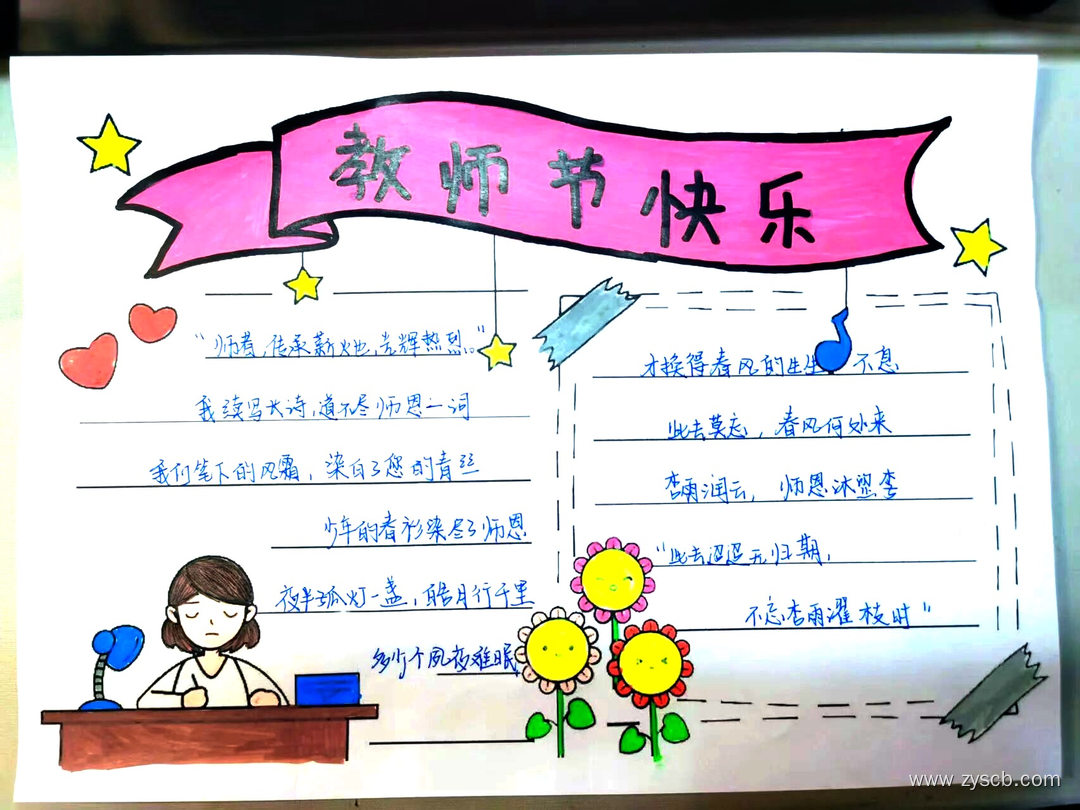 教师节快乐
“师者,传承薪火也,光辉热烈。”
我续写长诗,道不尽师恩一词
我们笔下的风霜,染白了您的青丝
少年的春衫染尽了师恩
夜半孤灯一盏,皓月行千里
多少个夙夜难眠
才换得春风的生生不息
此去莫忘,春风何处来
杏雨润云,师恩沐照李
“此去迢迢无归期,
不忘杏雨濯枝时”
www.zyscb.com